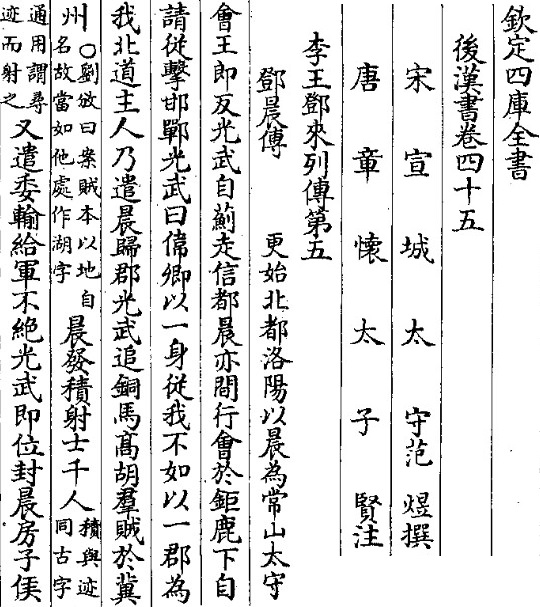 欽定四庫全書
後漢書卷四十五
宋宣城太守范煜撰
唐章懷太子賢注
李王鄧來列傳第五
鄧晨傳 更始北都洛陽以晨為常山太守
會王即反光武自薊走信都晨亦間行會於鉅鹿下自
請從擊邯鄲光武曰偉卿以一身從我不如以一郡為
我北道主人乃遣晨歸郡光武追銅馬髙胡羣賊於冀
州〇劉攽曰案賊本以地自名故當如他處作湖字晨發積射士千人積與迹同古字
通用謂尋迹而射之又遣委輸給軍不絶光武即位封晨房子侯